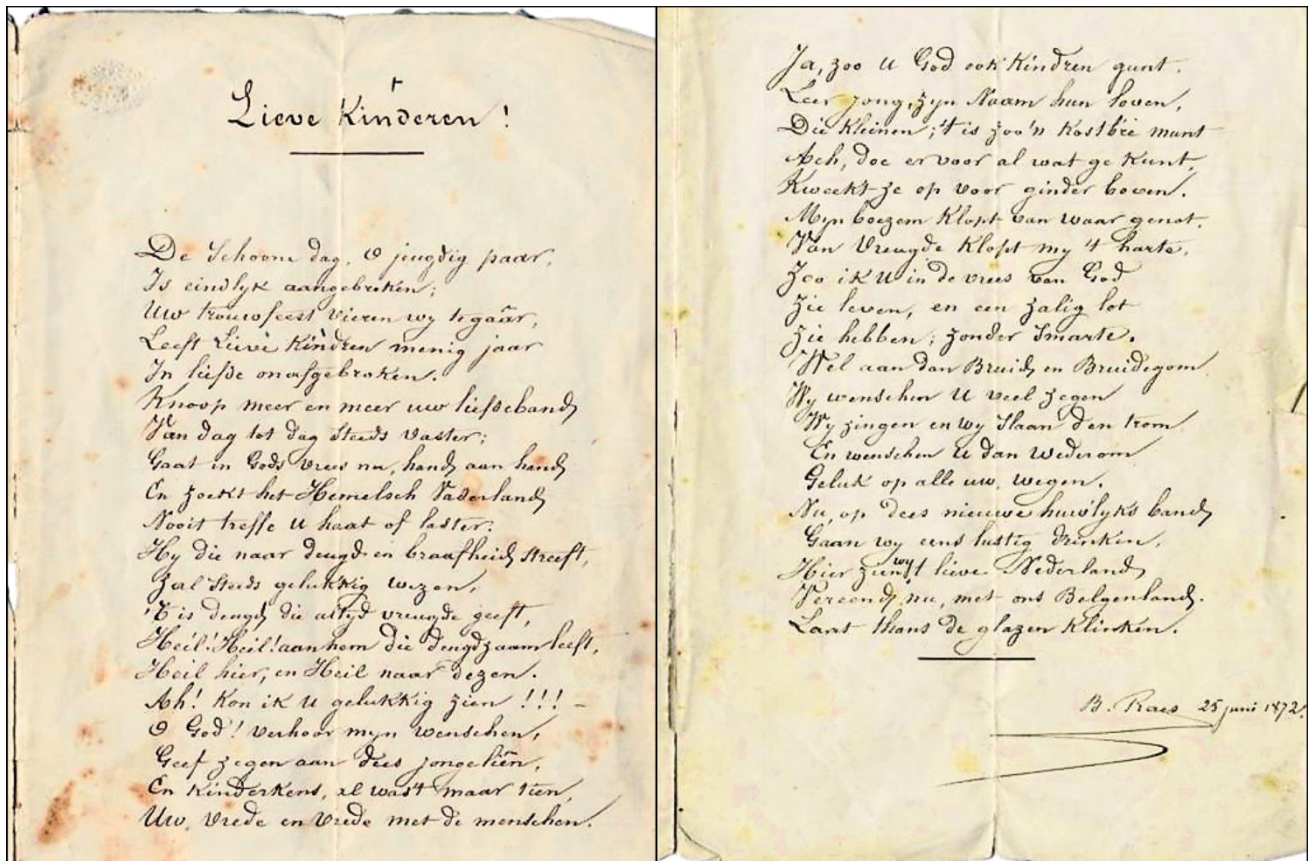 †
Lieve Kinderen!
De Schoone dag, O jeugdig paar,
Is eindlyk aangebroken;
Uw trouwfeest vieren wy te gaâr,
Leeft Lieve Kindren menig jaar
In liefde onafgebroken.
Knoop meer en meer uw liefdeband
Van dag tot dag steeds vaster;
Gaat in Gods vrees nu, hand aan hand
En zoekt het Hemelsch Vaderland
Nooit treffe U haat of laster.
Hy die naar deugd en braafheid streeft,
Zal steeds gelukkig wezen,
't is deugd die altyd vreugde geeft,
Heil! Heil! aan hem die deugdzaam leeft,
Heil hier, en Heil naar dezen.
Ah! Kon ik U gelukkig zien !!! –
O God! verhoor myn wenschen,
Geef zegen aan dees jongeliên,
En Kinderkens, al wast maar tien,
Uw vrede en vrede met de menschen.
Ja, zoo U God ook Kindren gunt.
Leer jong, zyn Naam hun loven,
Die Kleinen; 't is zoo'n Kostb're munt
Ach, doe er voor al wat ge Kunt,
Kweekt ze op voor ginder boven.
Myn boezem Klopt van waar genot,
Van Vreugde Klopt my 't harte,
Zoo ik U in de vrees van God
Zie leven, en een zalig lot
Zie hebben; zonder Smarte.
Wel aan dan Bruid en Bruidegom
Wy wenschen U veel zegen
Wy zingen en wy Slaan den trom
En wenschen U dan wederom
Geluk op alle uw wegen.
Nu, op dees nieuwe huwlyks band
Gaan wy eens lustig drinken,
Hier zien wy 't lieve Nederland
Vereend nu, met ons Belgenland.
Laat thans de glazen Klinken.
B. Raes 25 juni 1872.